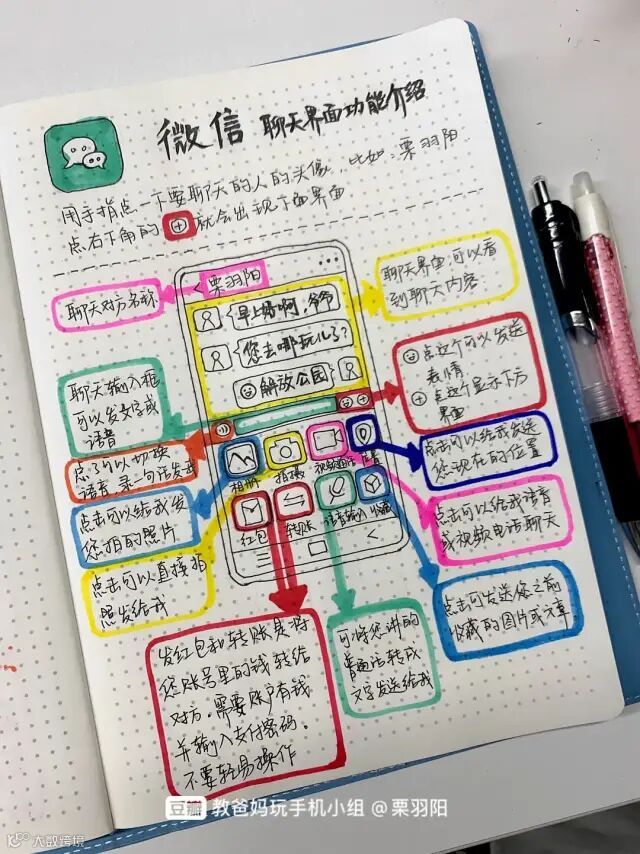 微信 聊天界面功能介绍
用手指点一下要聊天的人的头像，比如：栗羽阳
点右下角的⊕就会出现下面界面
聊天对方名称
栗羽阳
聊天界面，可以看
到聊天内容
早上好啊，爷爷
您去哪玩儿了？
解放公园
聊天输入框
可以发文字或
语音
点这个可以发送
表情
点这个显示下方
界面
点了可以切换
语音，录一句话发我
相册
拍摄
视频通话
位置
点击可以给我发送
您现在的位置
点击可以给我发
您拍的照片
红包
转账
语音输入
收藏
点击可以给我语音
或视频电话聊天
点击可以直接拍
照发给我
点击可发送您之前
收藏的图片或文章
发红包和转账是将
您账号里的钱转给
对方，需要账户有钱
并输入支付密码，
不要轻易操作
可将您讲的
普通话转成
文字发送给我
豆瓣 教爸妈玩手机小组 @栗羽阳
大数跨境